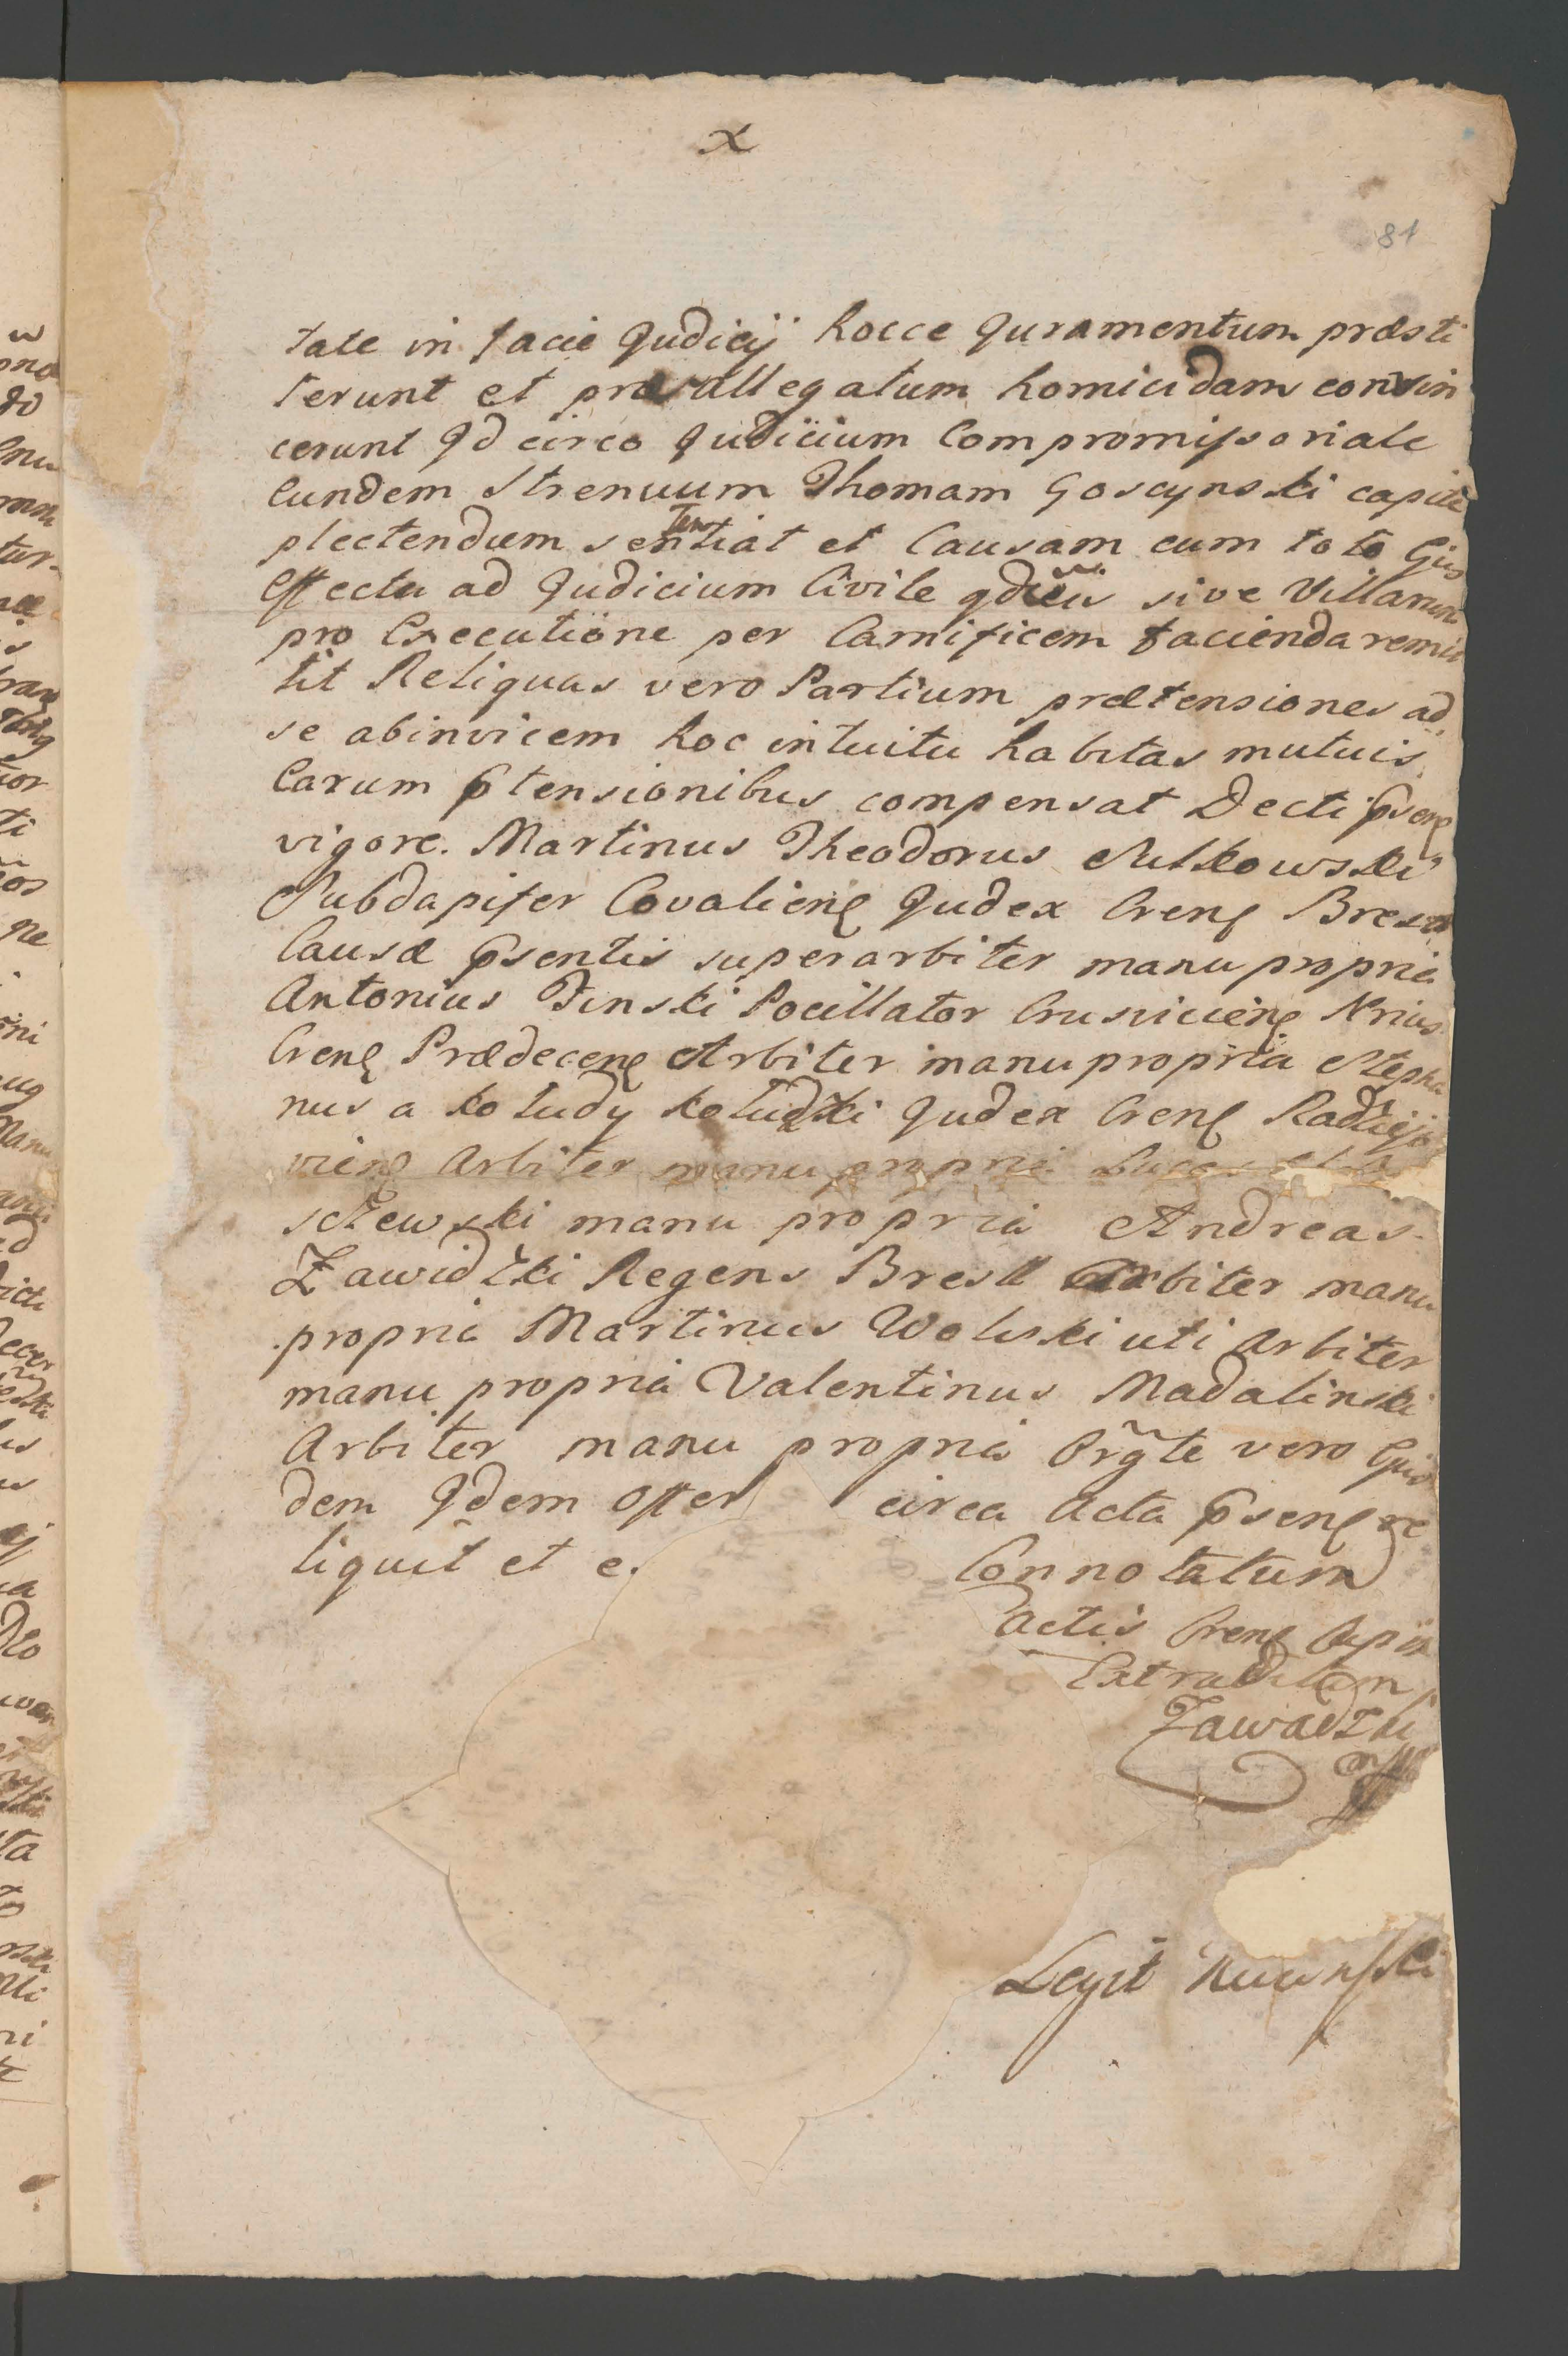 x
81
tate in facie Judicij hocce Juramentum præsti
terunt et præallegatum homicidam convin
cerunt Id circo Judicium Compromissoriale
Eundem Strenuum Thomam Goscynski capite
plectendum sententiat et Causam cum toto Ejus
Effectu ad Judicium Civile sive Villanum
pro Executione per Carnificem facienda remit
tit Reliquas vero Partium prætensiones ad
se abinvicem hoc intuitu habitas mutuis
Earum ptensionibus compensat Decti psens
vigore. Martinus Theodorus Sulkowski
Subdapifer Covaliens Judex Crens Brest
Causæ psentis superarbiter manu propria
Antonius Finski Pocillator Crusviciens Nrius
Crens Prædecens Arbiter manu propria Stepha
nus a Koludy Koludzki Judex Crens Radziejo
viens Arbiter manu propria Lucas
sczewski manu propria Andreas
Zawidzki Regens Brest Arbiter manu
propria Martinus Wolski uti Arbiter
manu propria Valentinus Madalinski
Arbiter manu propria Orgte vero Ejus
dem Idem Offer circa Acta psens re
liquit et e.
Connotatum
Actis Crens
Extraditum
Zawadzki
Legit